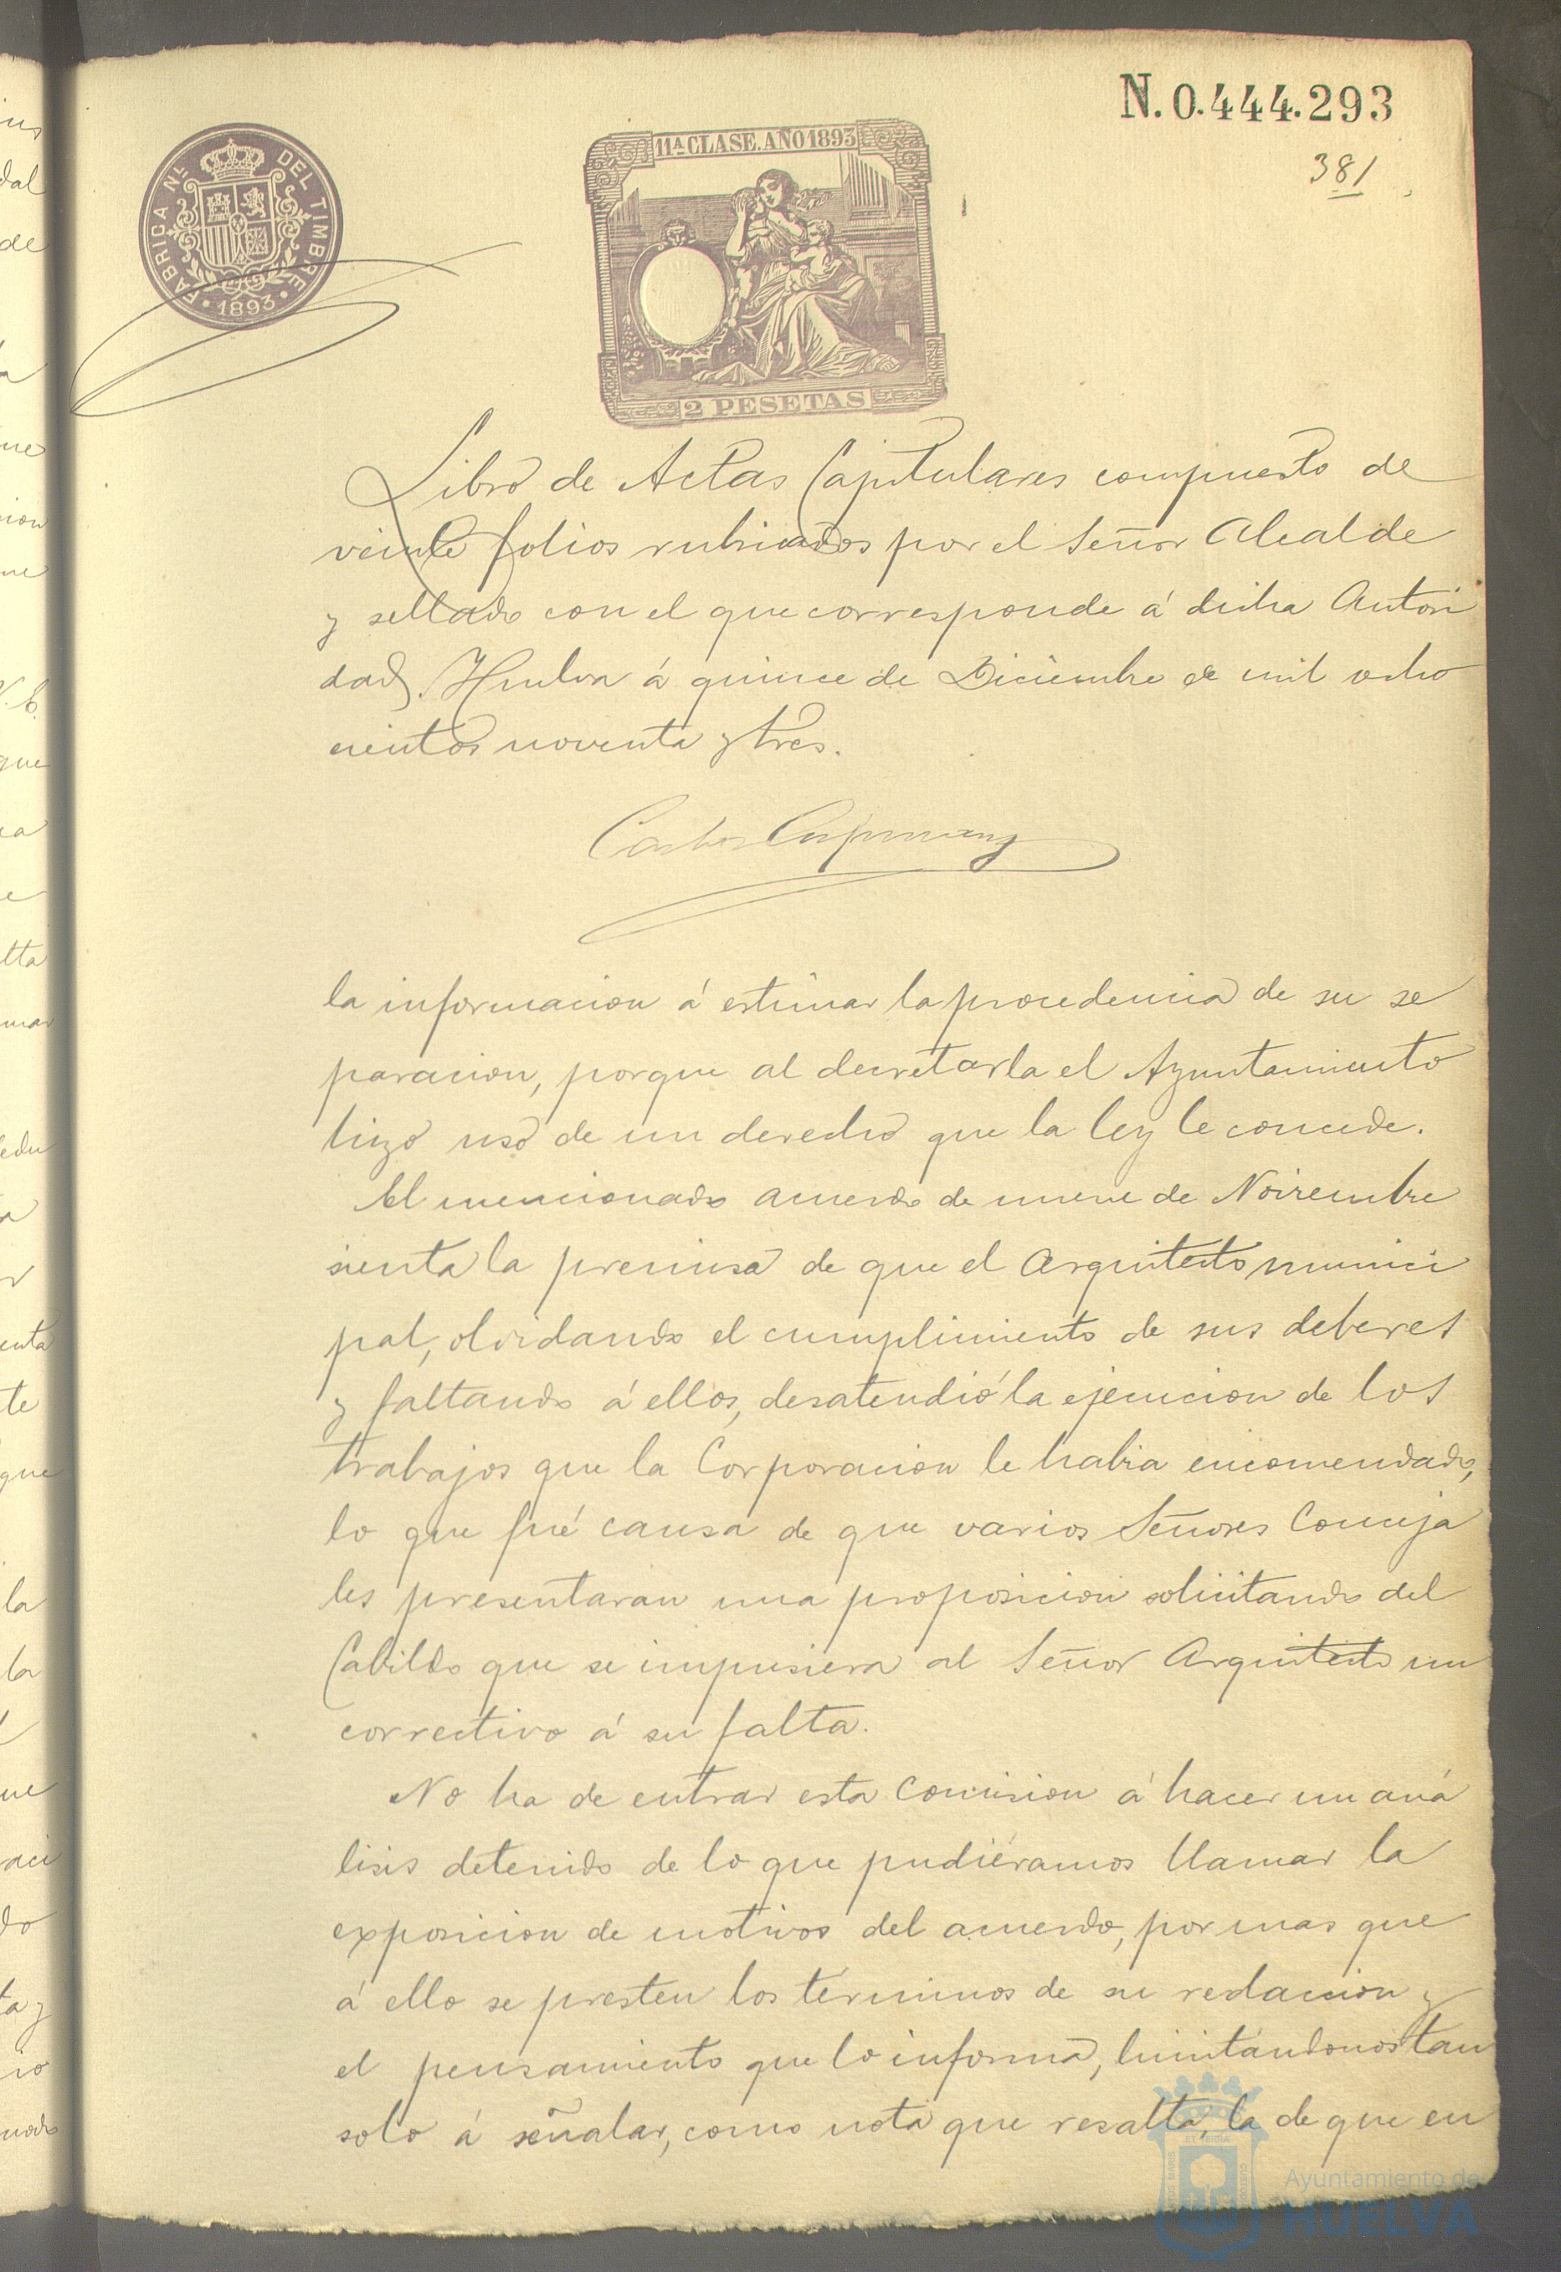 N. 0.444.293
381
FABRICA NL. DEL TIMBRE
1893
11ª CLASE. AÑO 1893
2 PESETAS
Libro de Actas Capitulares compuesto de
veinte folios rubricados por el Señor Alcalde
y sellado con el que corresponde á dicha Autori
dad. Huelva á quince de Diciembre de mil ocho
cientos noventa y tres.
la informacion á estimar la procedencia de su se
paracion, porque al decretarla el Ayuntamiento
hizo uso de un derecho que la ley le concede.
El mencionado acuerdo de nueve de Noviembre
sienta la premisa de que el Arquitecto munici
pal, olvidando el cumplimiento de sus deberes
y faltando á ellos, desatendió la ejecucion de los
trabajos que la Corporacion le habia encomendado,
lo que fué causa de que varios Señores Conceja
les presentaran una proposicion solicitando del
Cabildo que se impusiera al Señor Arquitecto un
correctivo á su falta.
No ha de entrar esta Comision á hacer un aná
lisis detenido de lo que pudiéramos llamar la
exposicion de motivos del acuerdo, por mas que
á ello se presten los términos de su redaccion y
el pensamiento que lo informa, limitándonos tan
solo á señalar, como nota que resalta, la de que en
Ayuntamiento de
HUELVA